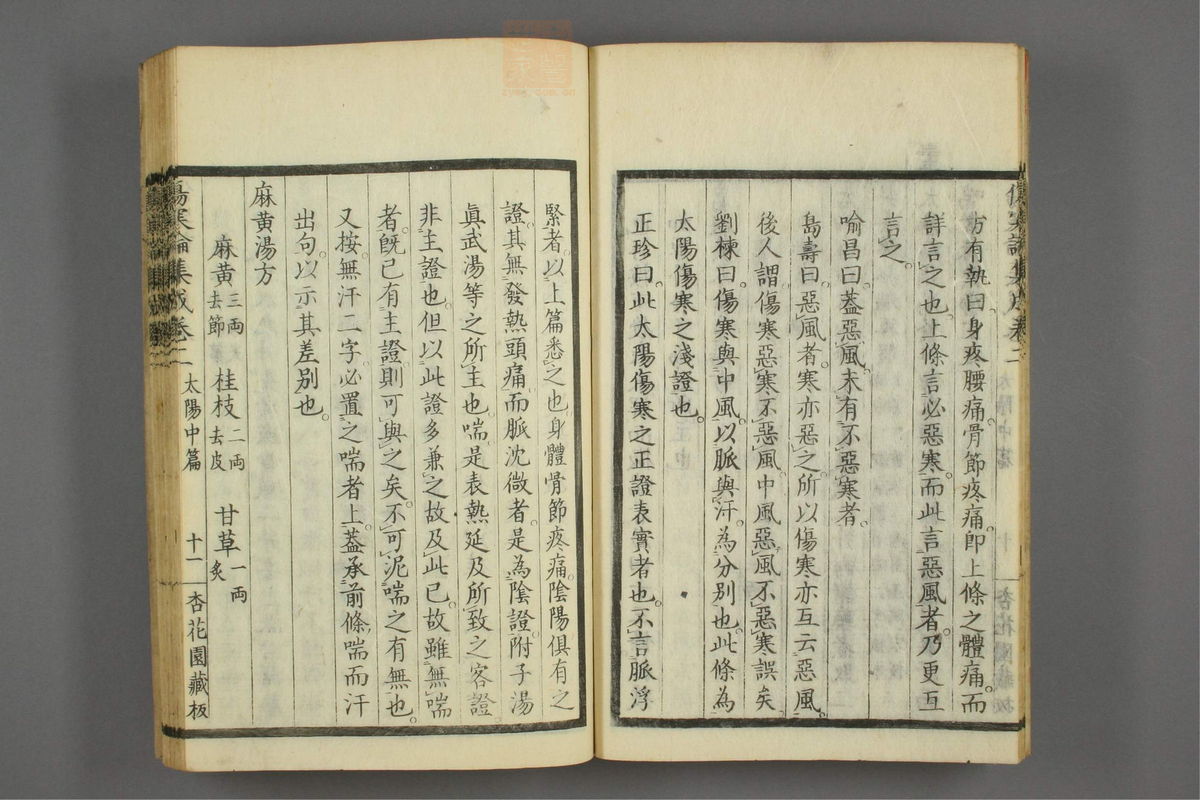 方有執曰身疼腰痛骨節疼痛即上條之體痛而
詳言之也上條言必惡寒而此言惡風者乃更互
言之
喻昌曰蓋惡風未有不惡寒者
島壽曰惡風者寒亦惡之所以傷寒亦互云惡風
後人謂傷寒惡寒不惡風中風惡風不惡寒誤矣
劉棟曰傷寒與中風以脈與汗為分別也此條為
太陽傷寒之淺證也
正珍曰此太陽傷寒之正證表實者也不言脈浮
緊者以上篇悉之也身體骨節疼痛陰陽俱有之
證其無發熱頭痛而脈沈微者是為陰證附子湯
眞武湯等之所主也喘是表熱延及所致之客證
非主證也但以此證多兼之故及此已故雖無喘
者既已有主證則可與之矣不可泥喘之有無也
又按無汗二字必置之喘者上蓋承前條喘而汗
出句以示其差別也
麻黃湯方
麻黃三兩去節 桂枝二兩去皮 甘草一兩炙
傷寒論集成卷二 太陽中篇 十一 杏花園藏板